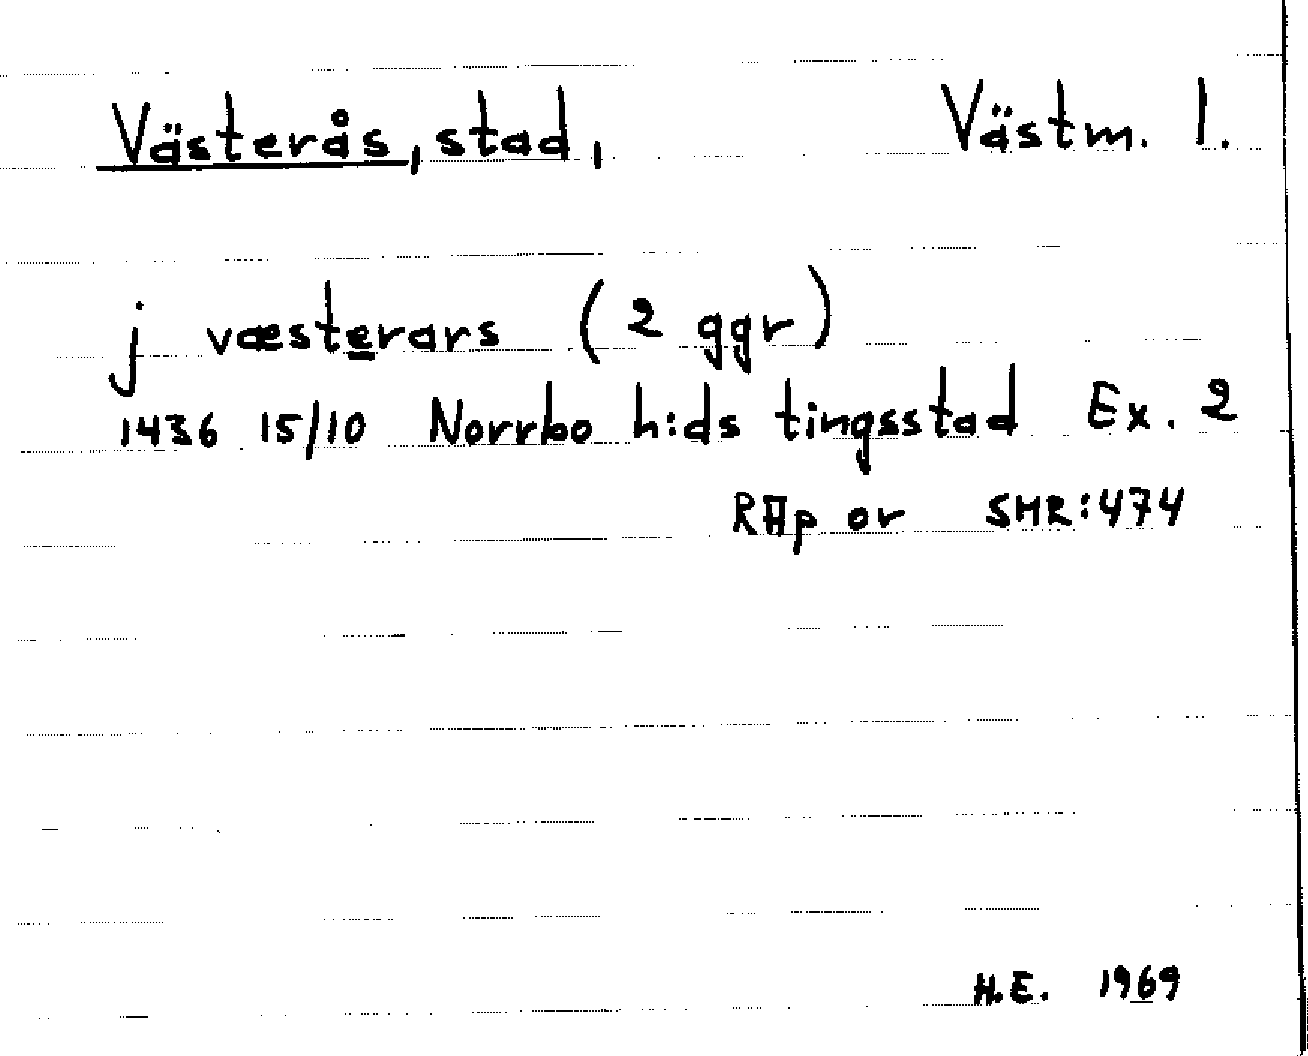 Västerås, stad, Västm. l.
j væsterars (2 ggr)
1436 15/10 Norrbo h:ds tingsstad Ex. 2
RAp or SMR:474
H.E. 1969